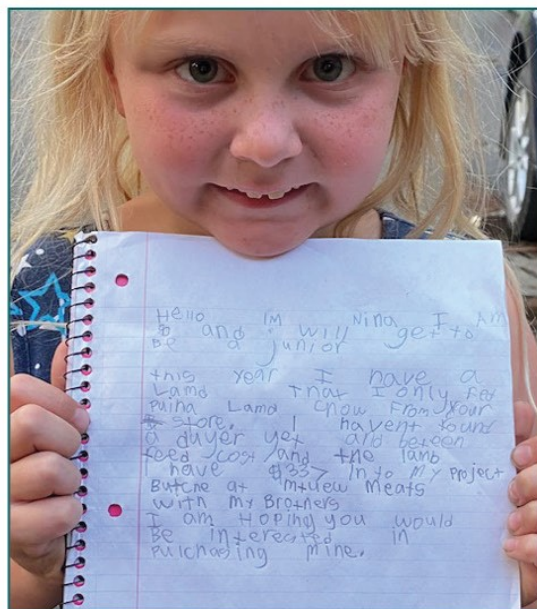 Hello IM Nina I AM
8 and i will get to
Be a junior
this year I have a
Lamd that I only Fed
Puina Lamd chow From your
store. I havent found
a duyer yet and between
feed cost and the lamb
I have $337 In to My Project
Butche at mtview Meats
with my Brothers
I am Hoping you would
Be interected in
pulchasing mine.